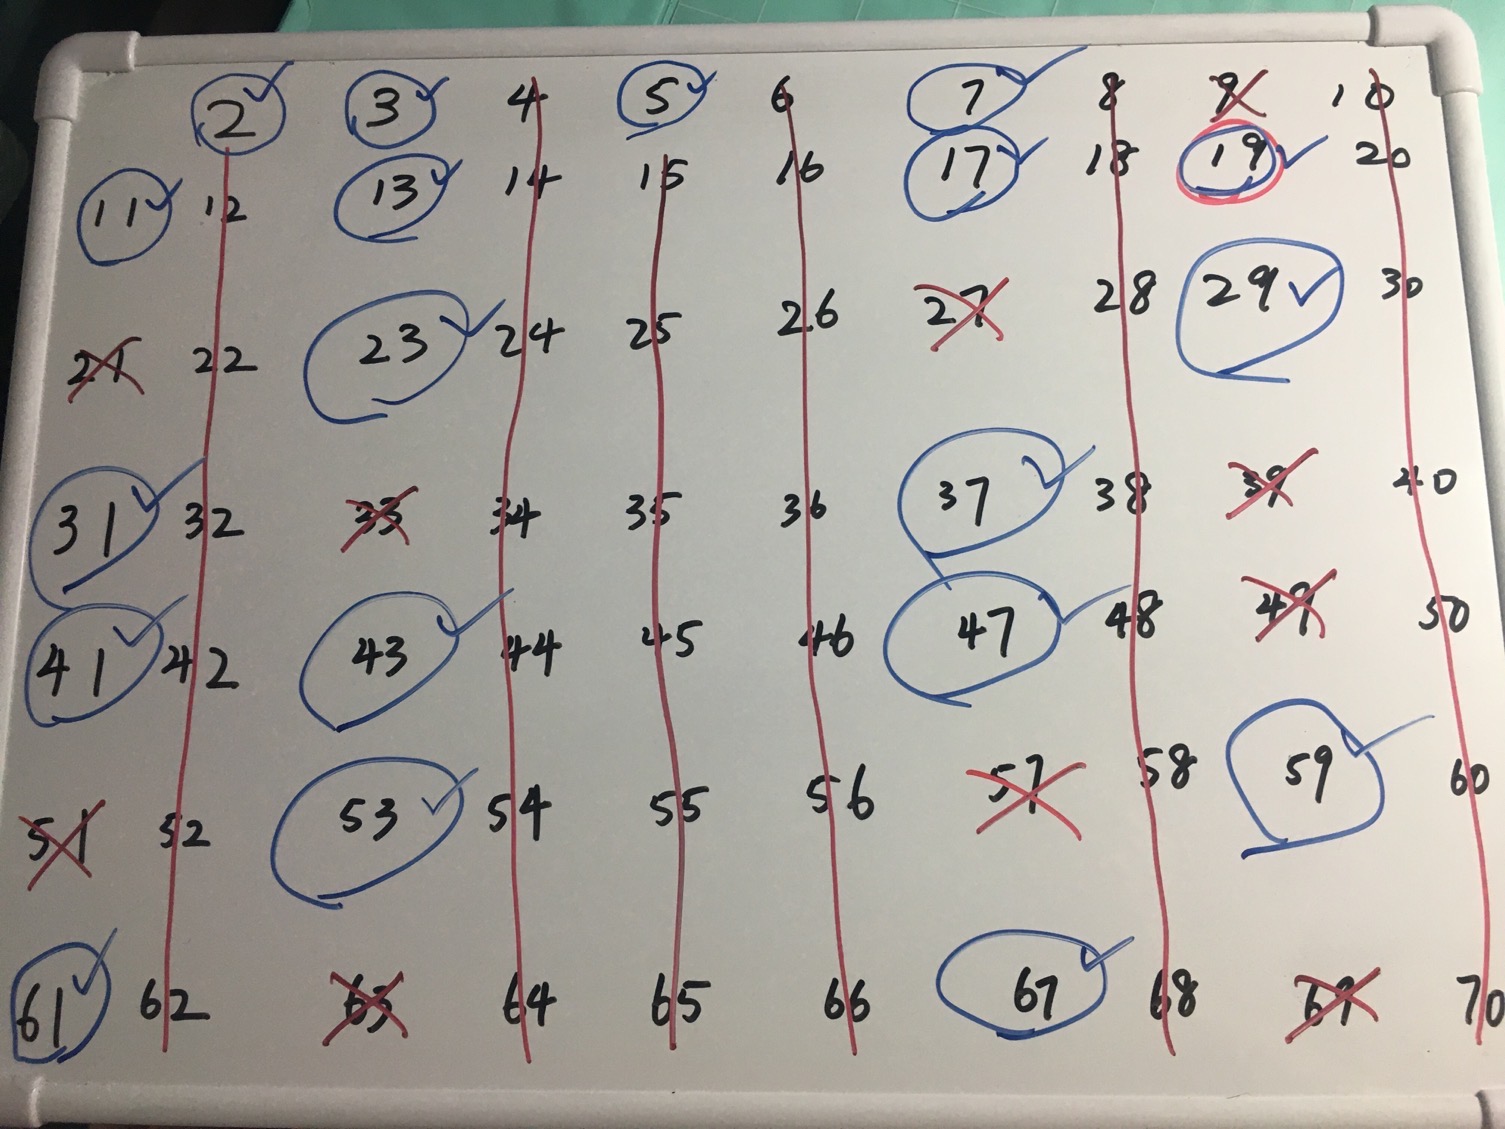 2 3 4 5 6 7 8 9 10
11 12 13 14 15 16 17 18 19 20
21 22 23 24 25 26 27 28 29 30
31 32 33 34 35 36 37 38 39 40
41 42 43 44 45 46 47 48 49 50
51 52 53 54 55 56 57 58 59 60
61 62 63 64 65 66 67 68 69 70